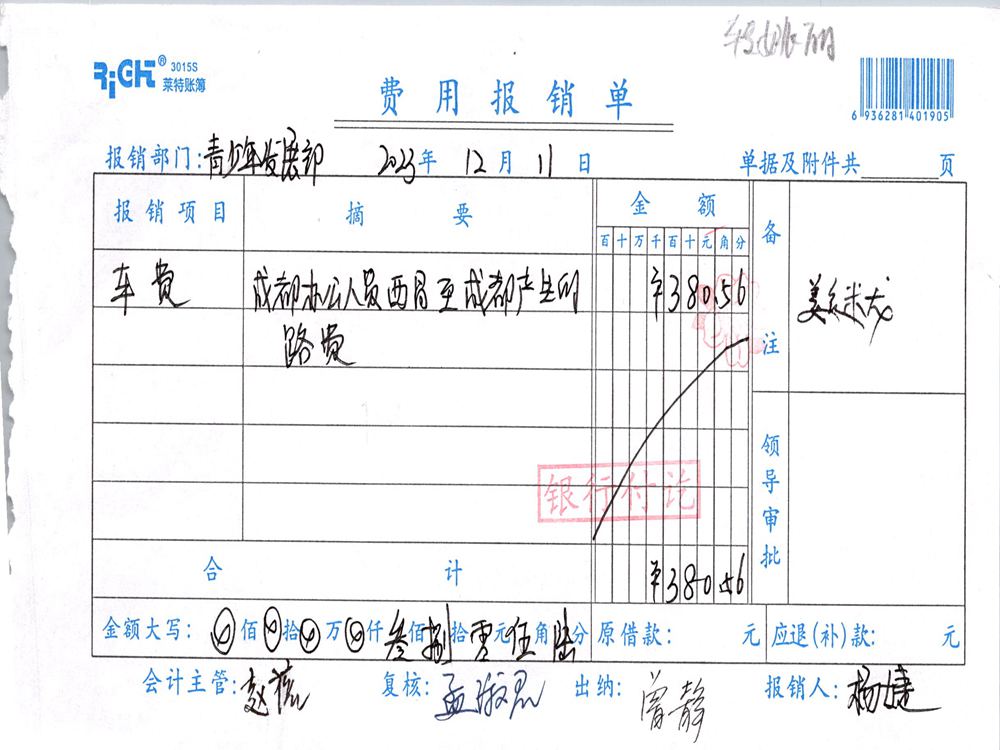 RiGHT® 3015S
莱特账簿
费用报销单
6 936281 401905
报销部门:青少年发展部 2023年 12月 11日 单据及附件共 页
报销项目 摘要 金额 备注
百十万千百十元角分
车费 成都办公人员西昌至成都产生的 ¥380.56
路费
银行付讫
领导审批
合计 ¥380.56
金额大写: 佰 拾 万 仟叁佰捌拾零元伍角陆分 原借款: 元 应退(补)款: 元
会计主管: 复核: 出纳:曾静 报销人:杨婕